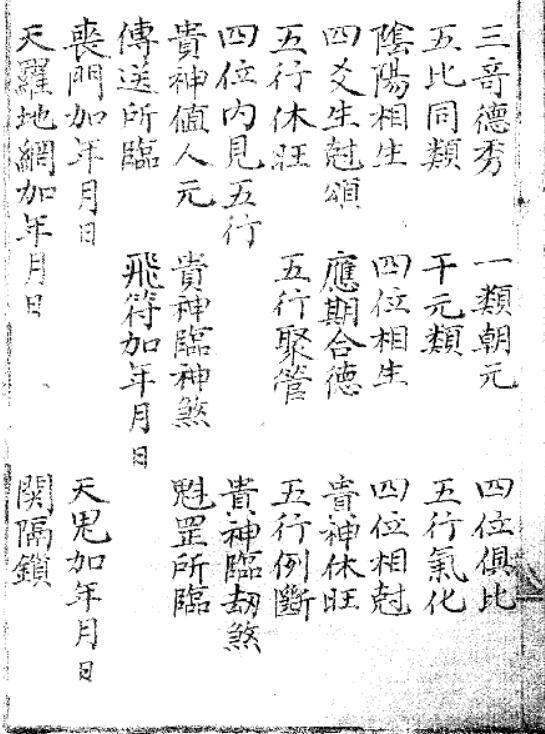 三奇德秀　一類朝元　四位俱比
五比同類　干元類　五行氣化
陰陽相生　四位相生　四位相尅
四爻生尅頌　應期合德　貴神休旺
五行休旺　五行聚管　五行例斷
四位內見五行　貴神臨劫煞
貴神值人元　貴神臨神煞　魁罡所臨
傳送所臨　飛符加年月日
喪門加年月日　天鬼加年月日
天羅地網加年月日　関隔鎖